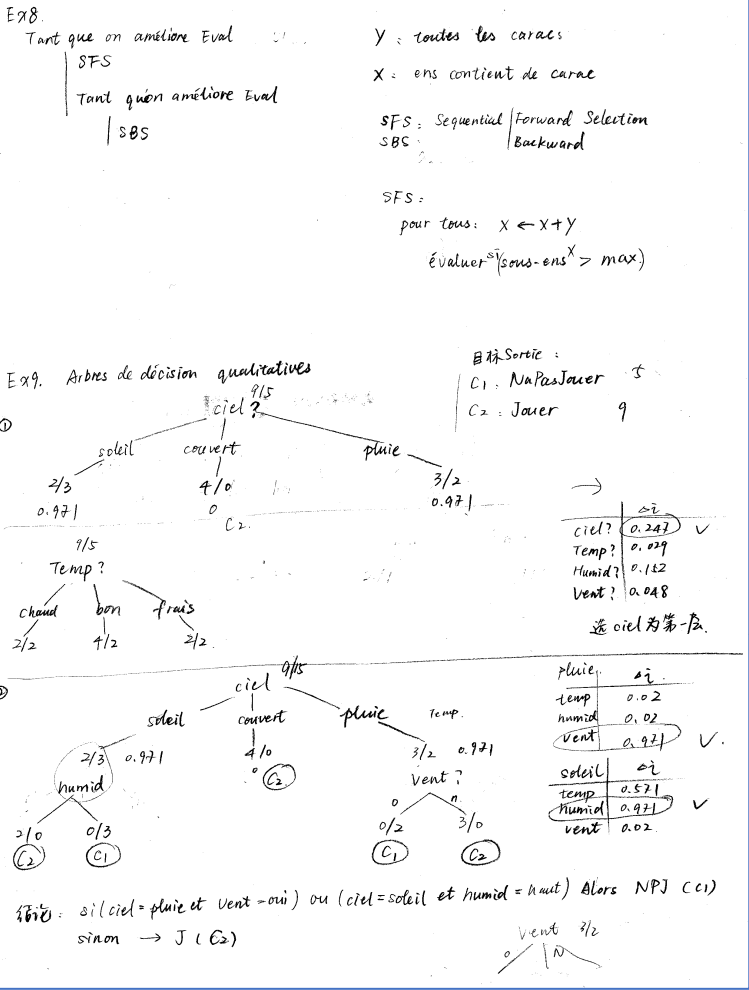 Ex8.
Tant que on améliore Eval
SFS
Tant qu'on améliore Eval
SBS
Y : toutes les caracs
X : ens contient de carac
SFS : Sequential Forward Selection
SBS : Backward
SFS :
pour tous : X ← X+Y
évaluer si (sous-ens X > max)
Ex9. Arbres de décision qualitatives
目标 Sortie :
C1 : NaPasJouer 5
C2 : Jouer 9
①
9/5
ciel ?
soleil couvert pluie
2/3 4/0 3/2
0.971 0 0.971
C2.
→
Δi
ciel? 0.247 ✓
Temp? 0.029
Humid? 0.152
Vent? 0.048
选 ciel 为第一层.
9/5
Temp ?
chaud bon frais
2/2 4/2 2/2.
②
ciel 9/5
soleil couvert pluie Temp.
2/3 0.971 4/0 3/2 0.971
humid 0 C2 vent ?
o n
2/0 0/3 0/2 3/0
C2 C1 C1 C2
pluie. Δi
temp 0.02
humid 0.02
vent 0.971 ✓.
soleil Δi
temp 0.571
humid 0.971 ✓
vent 0.02
结论 : si (ciel = pluie et Vent = oui) ou (ciel = soleil et humid = haut) Alors NPJ (C1)
sinon → J (C2)
Vent 3/2
o N